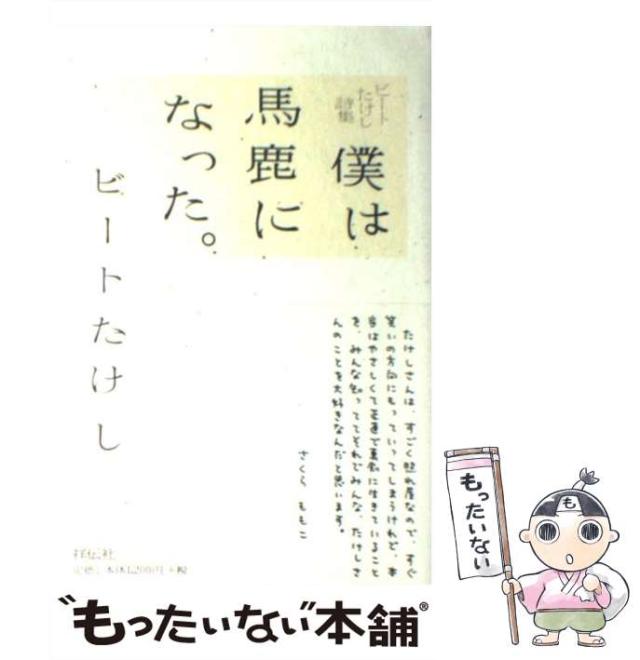 ビート
たけし
詩集
僕は
馬鹿に
なった。
ビートたけし
たけしさんは、すごく照れ屋なので、すぐ
笑いの方向にもっていってしまうけれど、本
当はやさしくて正直で真剣に生きていること
を、みんな知っててそれでみんな、たけしさ
んのことを大好きなんだと思います。
さくら ももこ
祥伝社
定価：本体1200円＋税
もったいない
も
“もったいない”本舗®